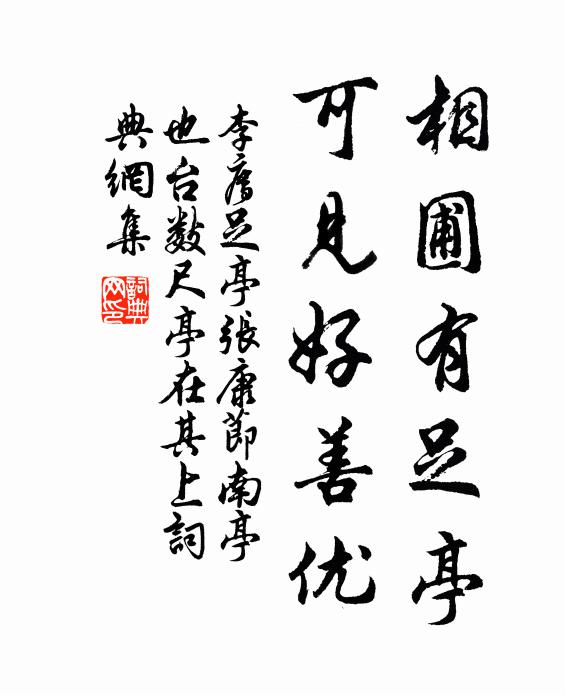 相圃有足亭
可见好善优
李廌足亭張康節南亭
也台数尺亭在其上詞
典網集
詞典網印